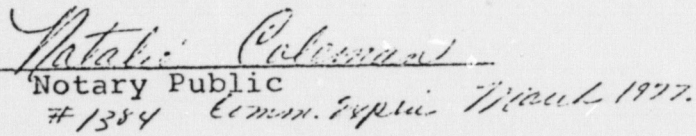 Natalie Coleman
Notary Public
#1384 Comm. Expires March 1977.